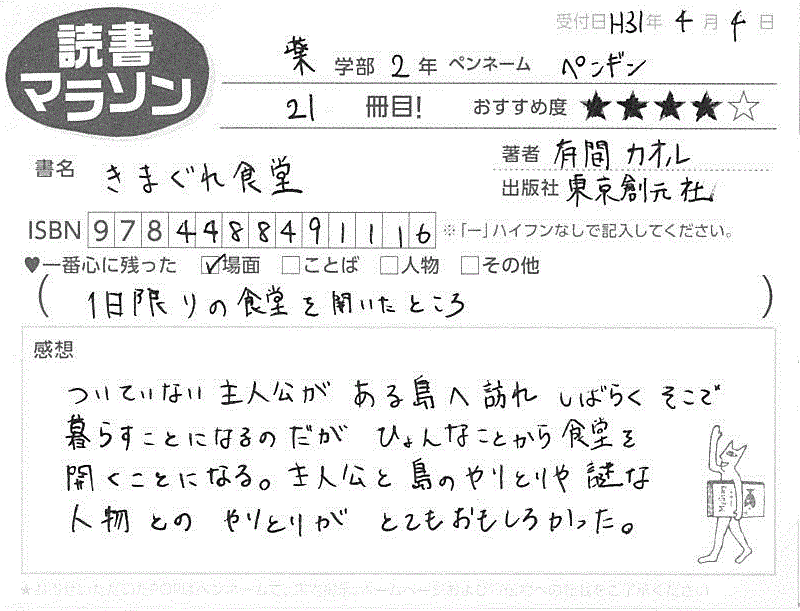 受付日H31年 4月 4日
読書
マラソン
薬 学部 2 年 ペンネーム ペンギン
21 冊目! おすすめ度 ★★★★☆
書名 きまぐれ食堂
著者 有間カオル
出版社 東京創元社
ISBN 9784488491116 ※「-」ハイフンなしで記入してください。
♥一番心に残った ☑場面 □ことば □人物 □その他
(1日限りの食堂を開いたところ)
感想
ついていない主人公が ある島へ訪れ しばらく そこで
暮らすことになるのだが ひょんなことから食堂を
開くことになる。主人公と島のやりとりや謎な
人物との やりとりが とてもおもしろかった。